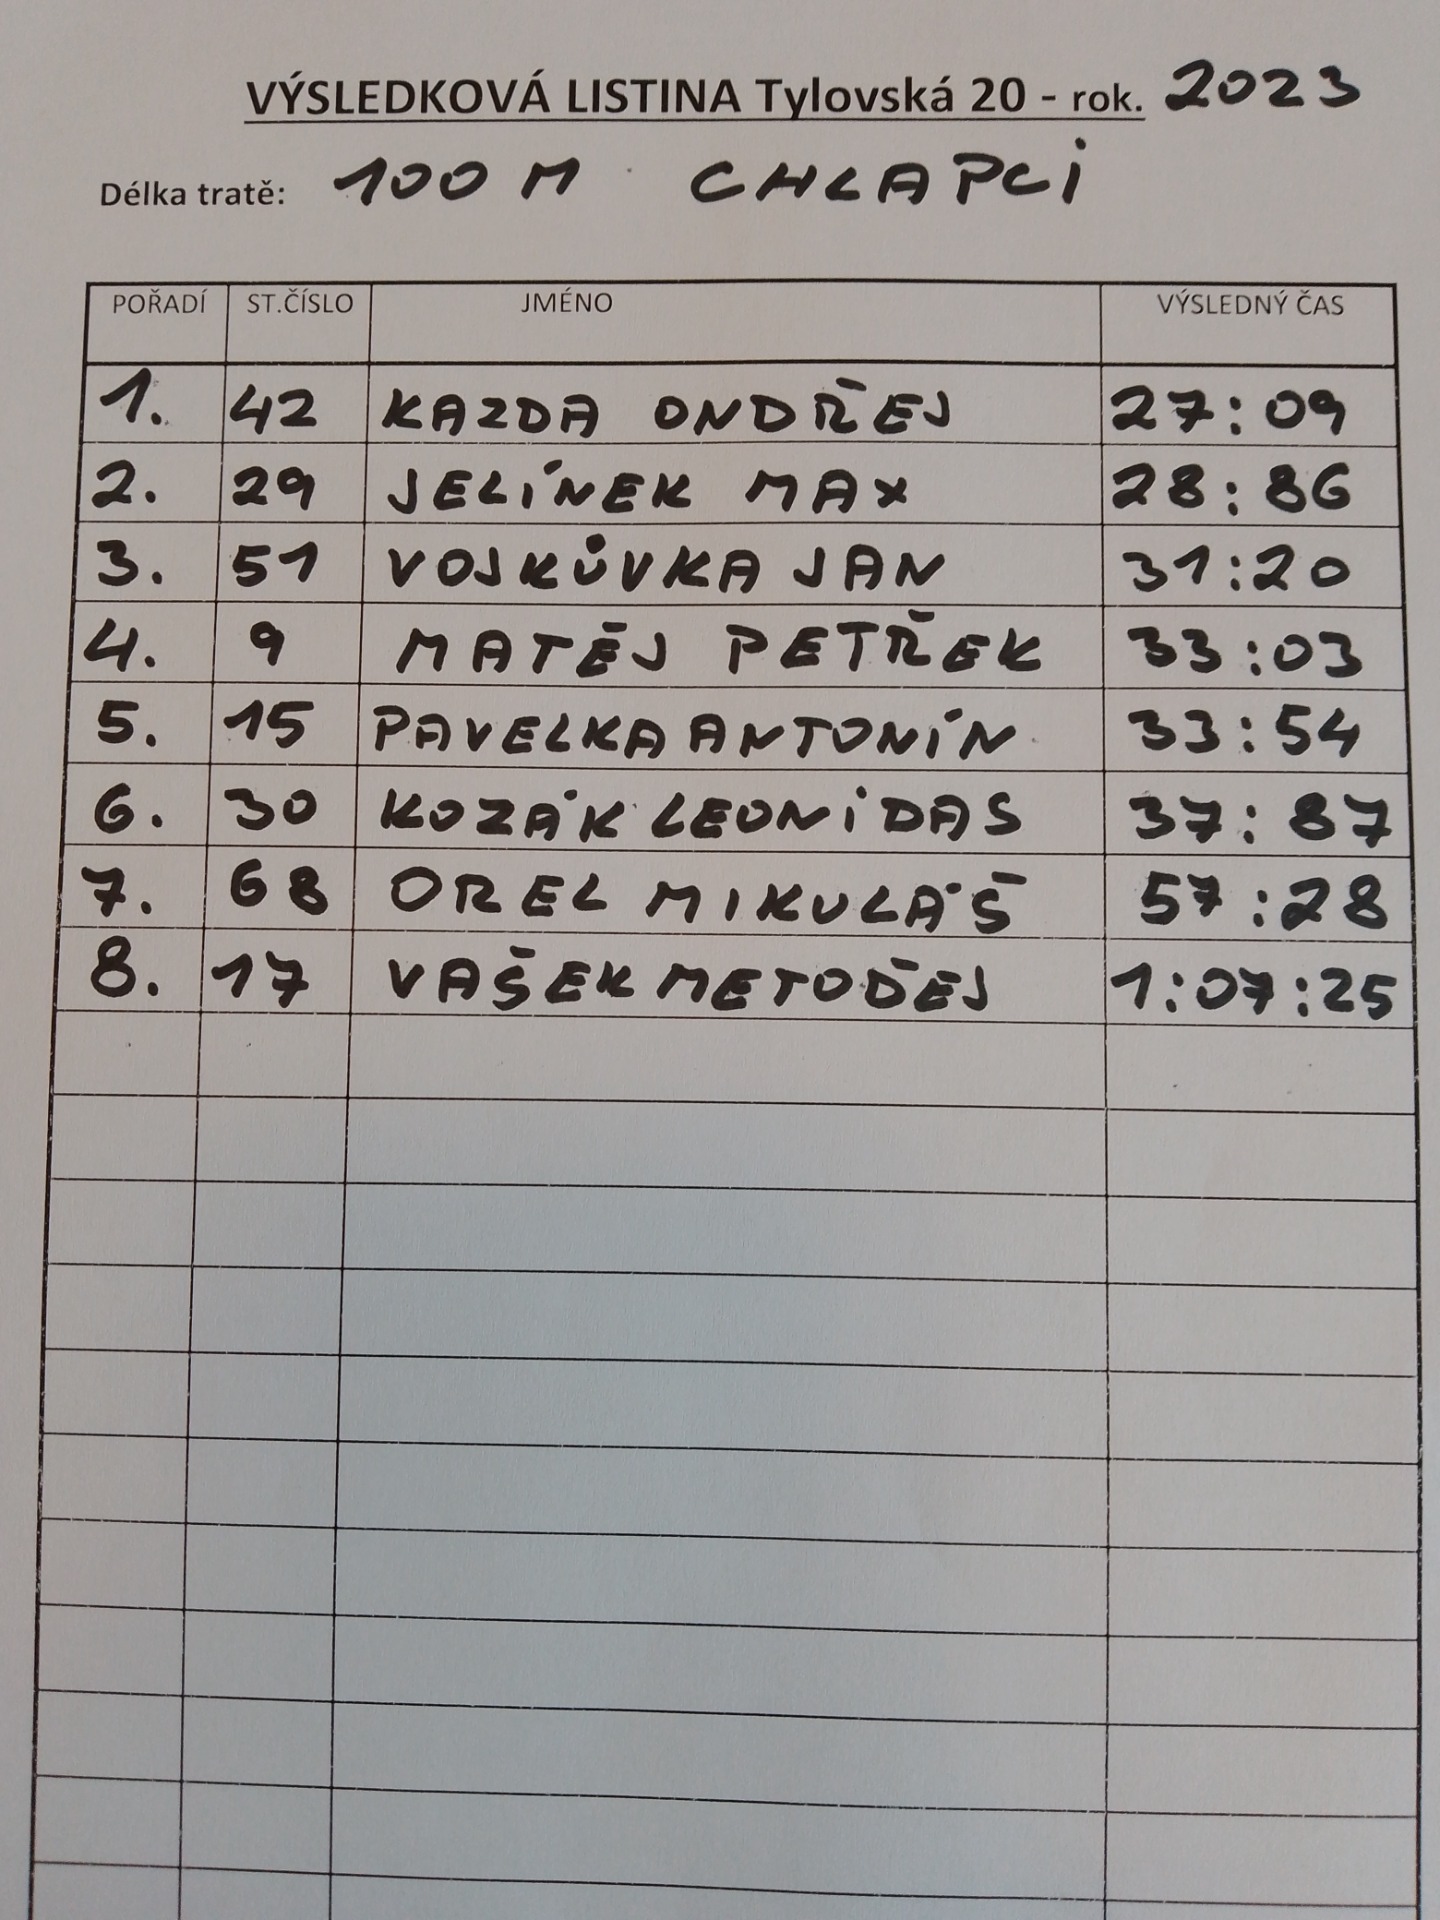 VÝSLEDKOVÁ LISTINA Tylovská 20 - rok. 2023
Délka tratě: 100 M CHLAPCI
POŘADÍ ST.ČÍSLO JMÉNO VÝSLEDNÝ ČAS
1. 42 KAZDA ONDŘEJ 27:09
2. 29 JELÍNEK MAX 28:86
3. 51 VOJKŮVKA JAN 31:20
4. 9 MATĚJ PETŘEK 33:03
5. 15 PAVELKA ANTONÍN 33:54
6. 30 KOZÁK LEONIDAS 37:87
7. 68 OREL MIKULÁŠ 57:28
8. 17 VAŠEK METODĚJ 1:07:25